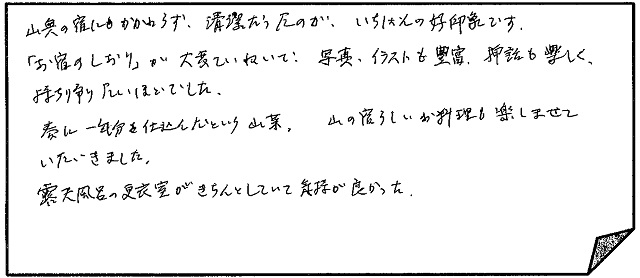 山奥の宿にもかかわらず、清潔だったのが、いちばんの好印象です。
「お宿のしおり」が大変ていねいで、写真、イラストも豊富、押話も楽しく、
持ち帰りたいほどでした。
春に一年分を仕込んだという山菜。 山の宿らしいお料理も楽しませて
いただきました。
露天風呂の更衣室がきちんとしていて気持が良かった.